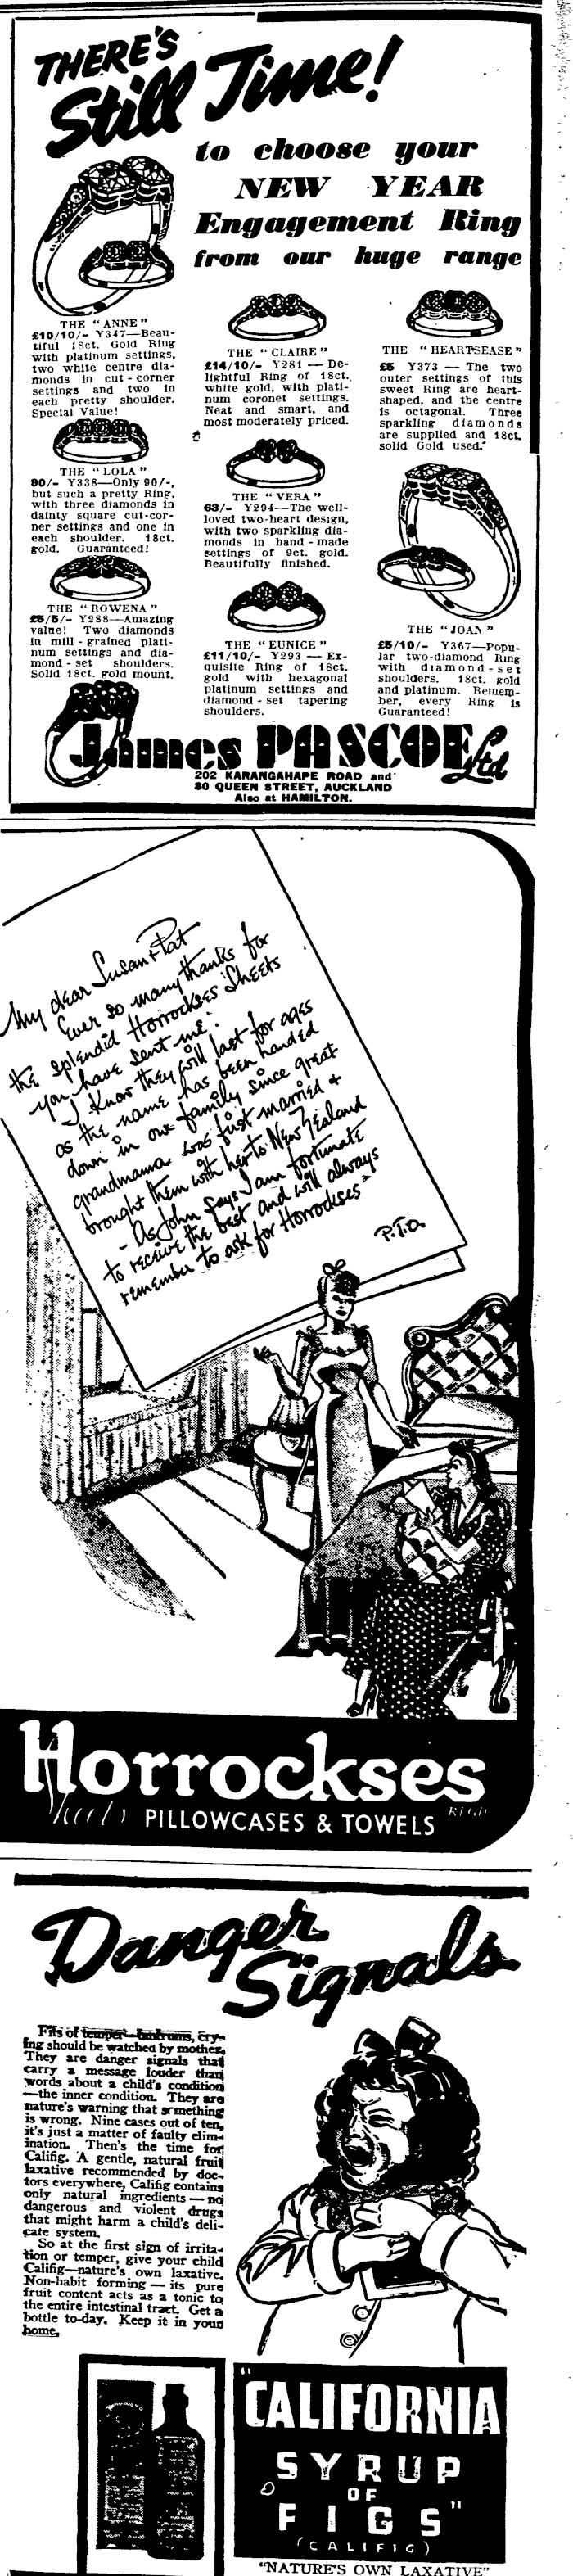 THERE'S
Still Time!
to choose your
NEW YEAR
Engagement Ring
from our huge range
THE "ANNE"
£10/10/- Y347—Beau-
tiful 18ct. Gold Ring
with platinum settings,
two white centre dia-
monds in cut-corner
settings and two in
each pretty shoulder.
Special Value!
THE "LOLA"
90/- Y338—Only 90/-,
but such a pretty Ring,
with three diamonds in
dainty square cut-cor-
ner settings and one in
each shoulder. 18ct.
gold. Guaranteed!
THE "ROWENA"
£5/5/- Y288—Amazing
value! Two diamonds
in mill-grained plati-
num settings and dia-
mond-set shoulders.
Solid 18ct. gold mount.
THE "CLAIRE"
£14/10/- Y281 — De-
lightful Ring of 18ct.
white gold, with plati-
num coronet settings.
Neat and smart, and
most moderately priced.
THE "VERA"
63/- Y294—The well-
loved two-heart design,
with two sparkling dia-
monds in hand-made
settings of 9ct. gold.
Beautifully finished.
THE "EUNICE"
£11/10/- Y293 — Ex-
quisite Ring of 18ct.
gold with hexagonal
platinum settings and
diamond-set tapering
shoulders.
THE "HEARTSEASE"
£5 Y373 — The two
outer settings of this
sweet Ring are heart-
shaped, and the centre
is octagonal. Three
sparkling diamonds
are supplied and 18ct.
solid Gold used.
THE "JOAN"
£5/10/- Y367—Popu-
lar two-diamond Ring
with diamond-set
shoulders. 18ct. gold
and platinum. Remem-
ber, every Ring is
Guaranteed!
James PASCOE Ltd
202 KARANGAHAPE ROAD and
80 QUEEN STREET, AUCKLAND
Also at HAMILTON.
My dear Susan & Pat
Ever so many thanks for
the splendid Horrockses Sheets
you have sent me.
I know they will last for ages
as the name has been handed
down in our family since great
grandmama was first married &
brought them with her to New Zealand
- As John says I am fortunate
to receive the best and will always
remember to ask for Horrockses"
P.T.O.
Horrockses
Sheets PILLOWCASES & TOWELS REGD
Danger
Signals
Fits of temper, tantrums, cry-
ing should be watched by mother.
They are danger signals that
carry a message louder than
words about a child's condition
—the inner condition. They are
nature's warning that something
is wrong. Nine cases out of ten,
it's just a matter of faulty elim-
ination. Then's the time for
Califig. A gentle, natural fruit
laxative recommended by doc-
tors everywhere, Califig contains
only natural ingredients — no
dangerous and violent drugs
that might harm a child's deli-
cate system.
So at the first sign of irrita-
tion or temper, give your child
Califig—nature's own laxative.
Non-habit forming — its pure
fruit content acts as a tonic to
the entire intestinal tract. Get a
bottle to-day. Keep it in your
home.
"CALIFORNIA
SYRUP
OF
FIGS"
(CALIFIG)
"NATURE'S OWN LAXATIVE"